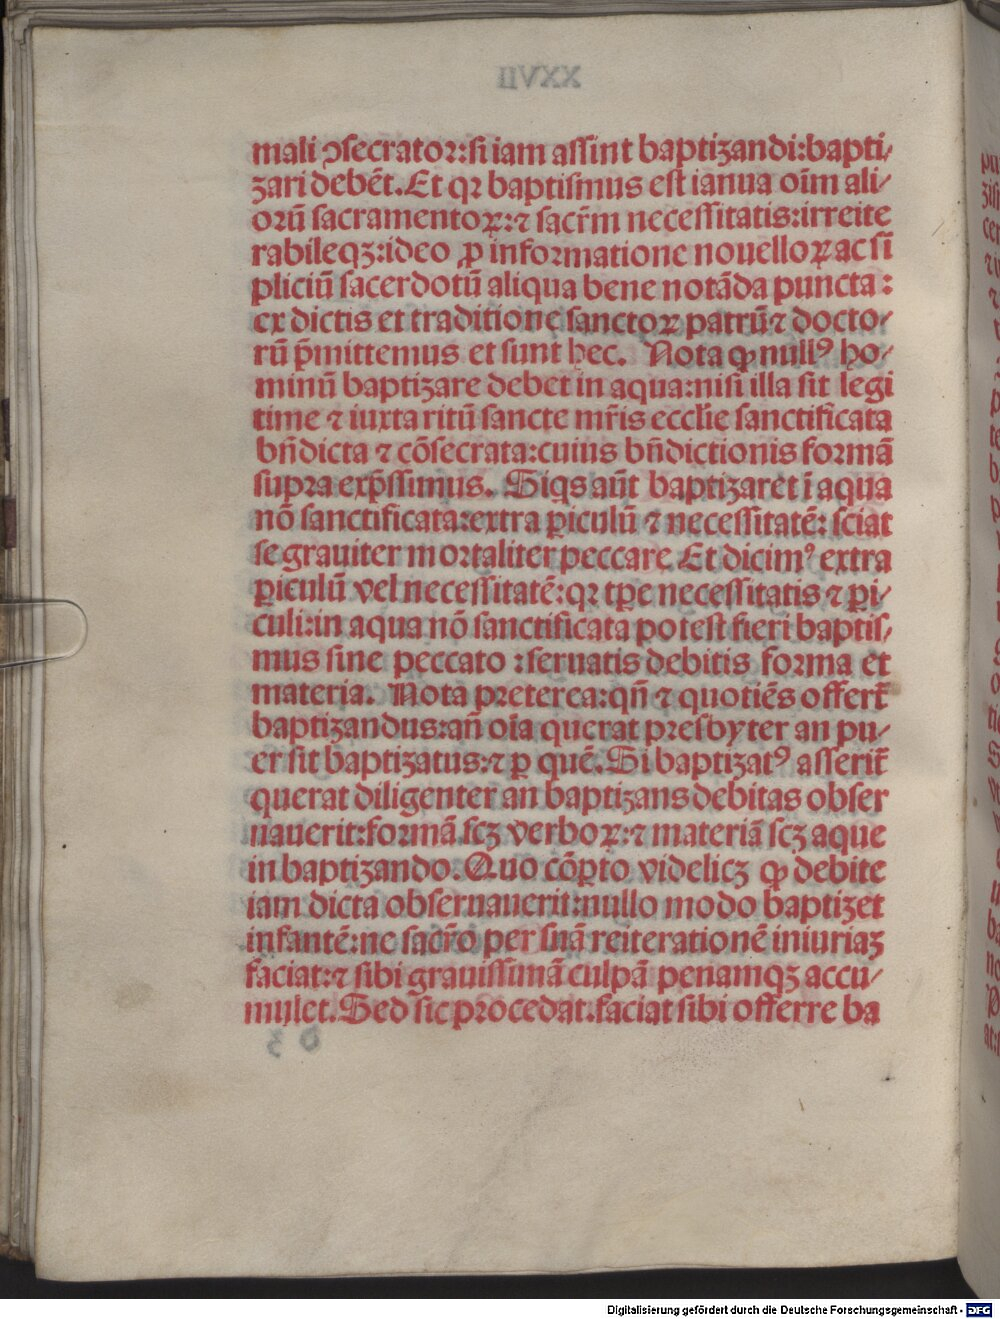 mali ꝯsecrator:si iam assint baptizandi:bapti⸗
zari debēt.Et qꝛ baptismus est ianua oīm ali⸗
orū sacramentoꝝ:⁊ sacr̄m necessitatis:irreite
rabileqꝫ:ideo ꝓ informatione nouelloꝝ ac sī
pliciū sacerdotū aliqua bene notāda puncta:
ex dictis et traditione sanctoꝝ patrū⁊ docto⸗
rū p̄mittemus et sunt hec. Nota ꝙ nullꝰ ho⸗
minū baptizare debet in aqua:nisi illa sit legi
time ⁊ iuxta ritū sancte mr̄is eccl̄ie sanctificata
bn̄dicta ⁊ cōsecrata:cuius bn̄dictionis formā
supra exp̄ssimus. Siqs aūt baptizaret ī aqua
nō sanctificata:extra ꝑiculū ⁊ necessitatē: sciat
se grauiter mortaliter peccare. Et dicimꝰ extra
ꝑiculū vel necessitatē:qꝛ tꝑe necessitatis ⁊ ꝑi⸗
culi:in aqua nō sanctificata potest fieri baptis⸗
mus sine peccato :seruatis debitis forma et
materia. Nota preterea:qn̄ ⁊ quotiēs offert̄
baptizandus:an̄ oīa querat presbyter an pu⸗
er sit baptizatus:⁊ ꝑ quē. Si baptizatꝰ asserit̄
querat diligenter an baptizans debitas obser
uauerit:formā scꝫ verboꝝ:⁊ materiā scꝫ aque
in baptizando. Quo cōꝑto videlicꝫ ꝙ debite
iam dicta obseruauerit:nullo modo baptizet
infantē:ne sacr̄o per suā reiterationē iniuriaꝫ
faciat:⁊ sibi grauissimā culpā penamqꝫ accu⸗
mulet. Sed sic procedat.faciat sibi offerre ba
Digitalisierung gefördert durch die Deutsche Forschungsgemeinschaft - DFG